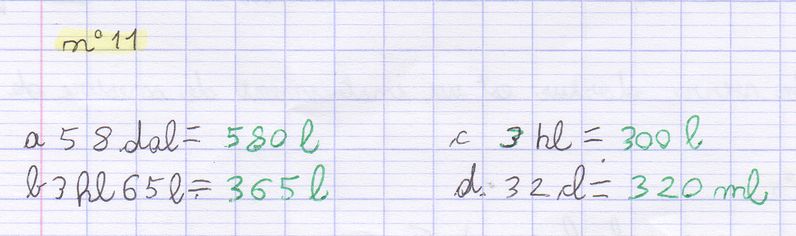 n° 11
a 58 dal = 580 l
c 3 hl = 300 l
b 3 hl 65 l = 365 l
d. 32 cl = 320 ml